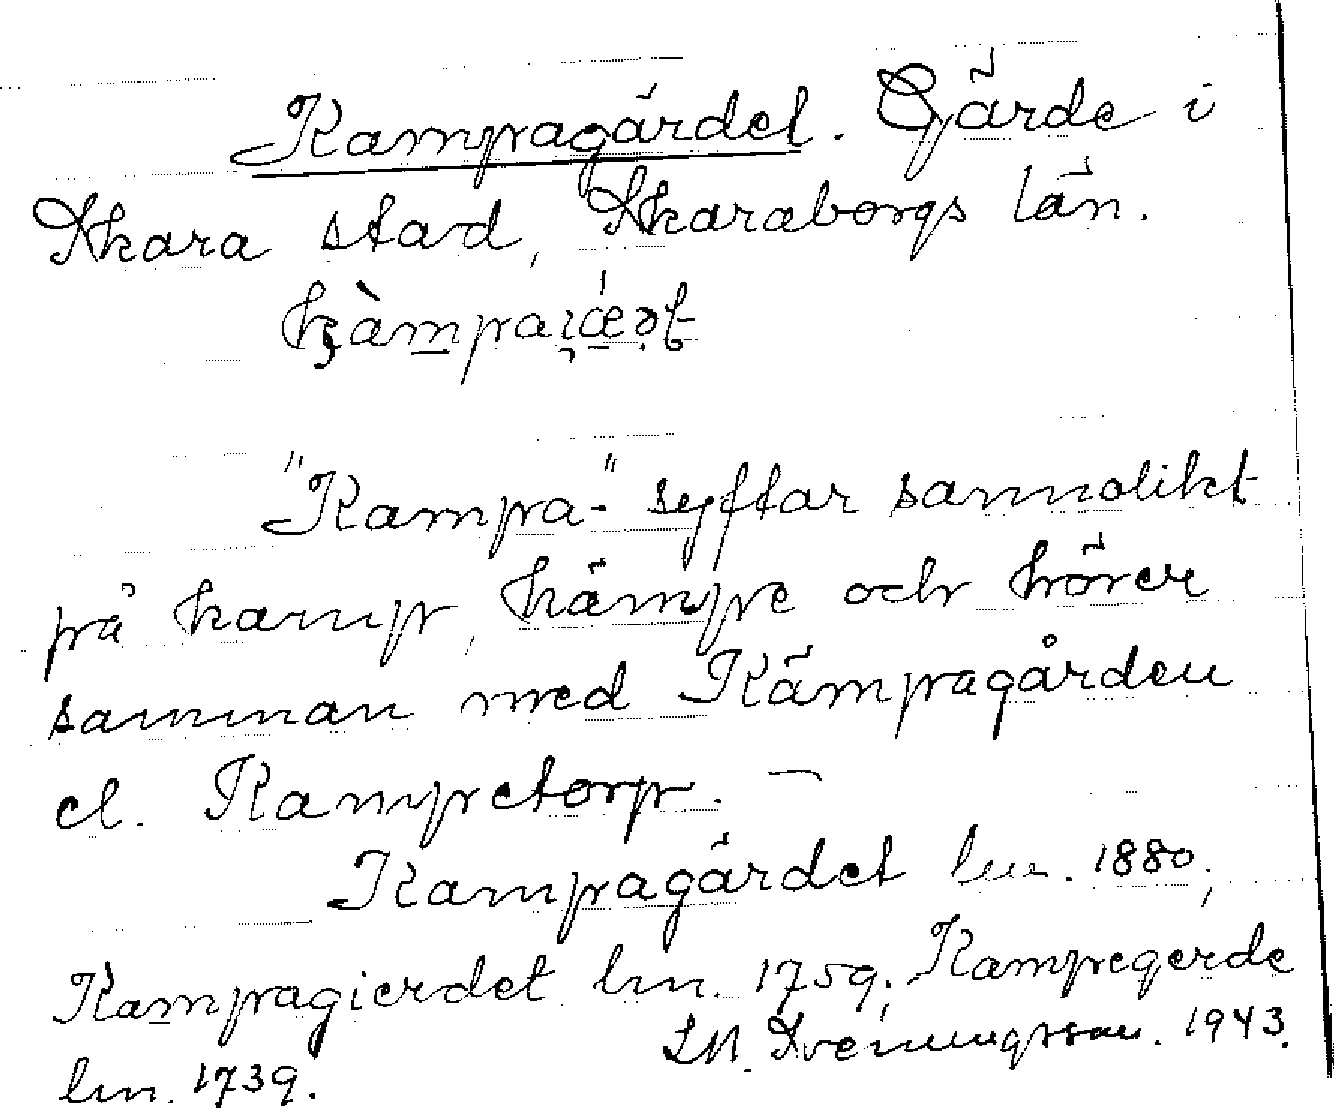 Kampagärdet. Gärde i
Skara stad, Skaraborgs län.
"Kampa-" syftar sannolikt
på kamp, kämpe och hörer
samman med Kämpagården
el. Kampetorp. —
Kampagärdet lm. 1880;
Kampagierdet lm. 1759; Kampegerde
S.M. Sveningsson. 1943.
lm. 1739.